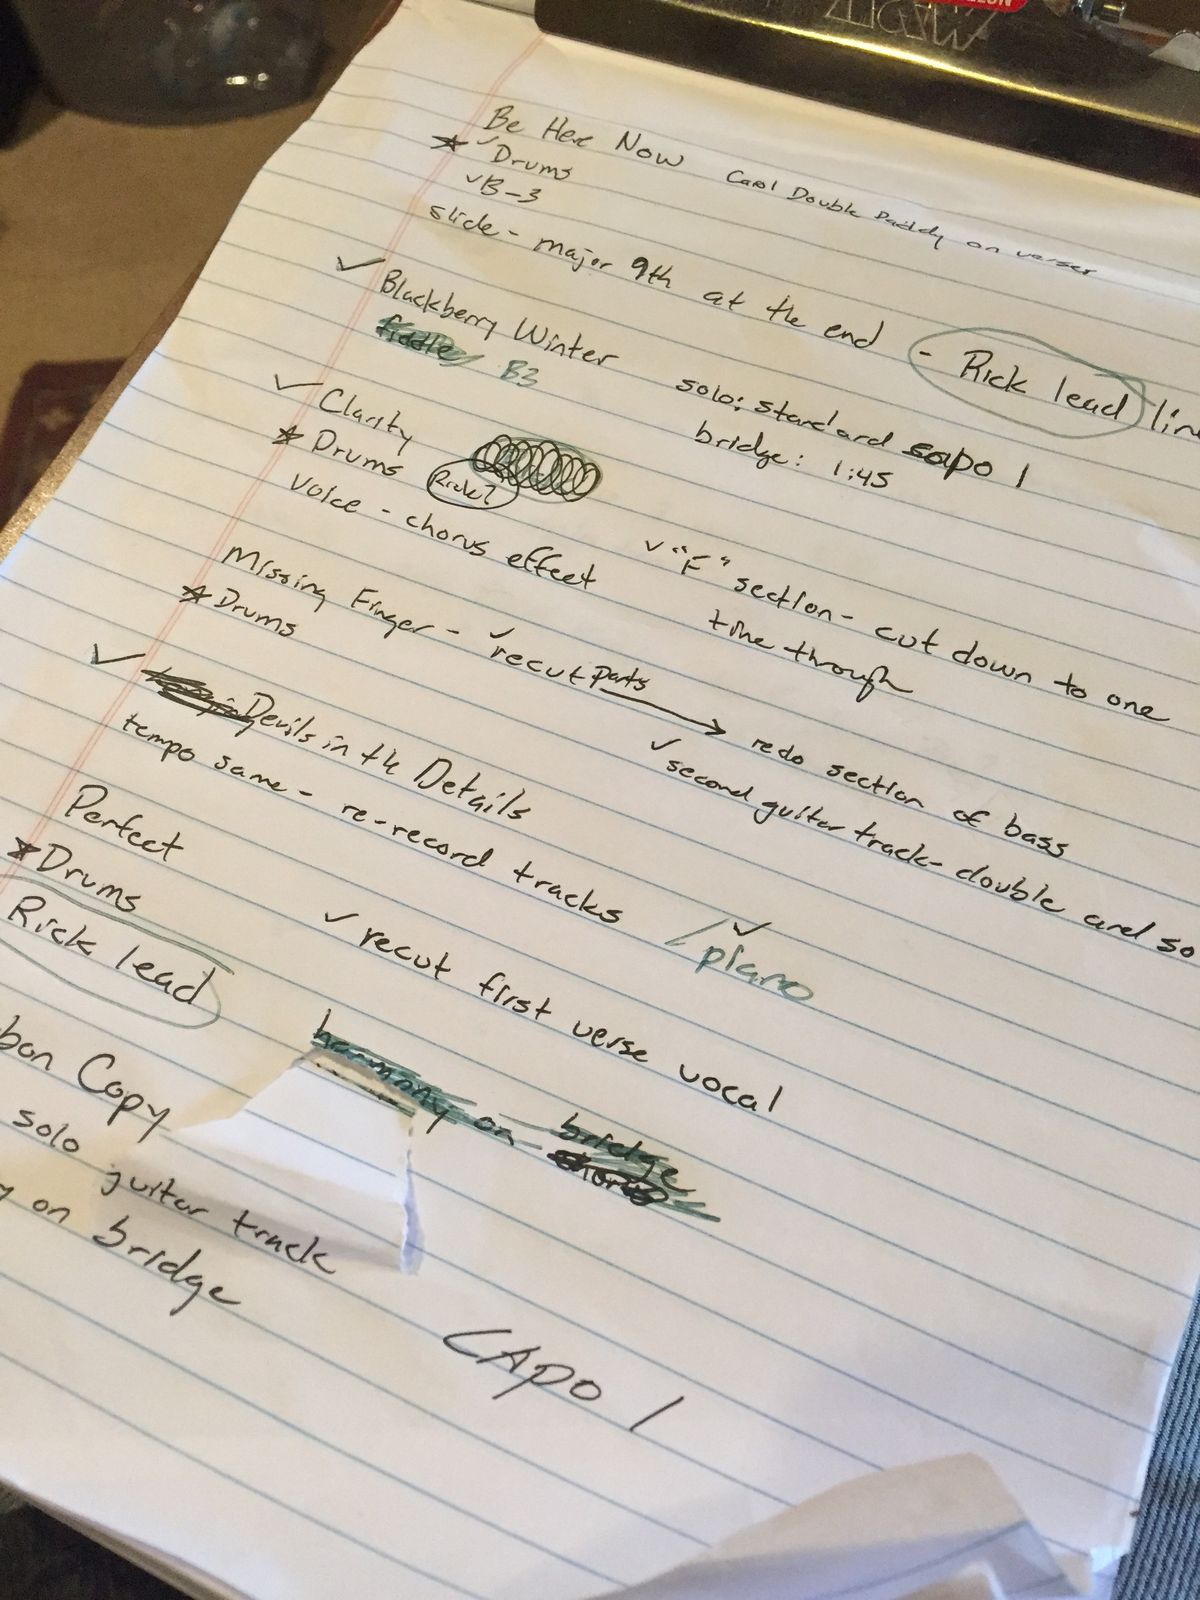 Be Here Now Carol Double Daddy on verses
★ ✓ Drums
✓ B-3
slide - major 9th at the end - Rick lead
✓ Blackberry Winter
fiddle B3
solo: standard capo 1
bridge: 1:45
✓ Clarity
★ Drums Rick?
voice - chorus effect
✓ "F" section - cut down to one
time through
Missing Finger - ✓ recut parts → redo section of bass
★ Drums
✓ second guitar track - double and
✓ Devils in th Details
tempo same - re-record tracks / ✓ piano
Perfect
★ Drums ✓ recut first verse vocal
Rick lead
harmony on bridge
Copy
solo guitar track
on bridge
CAPO 1